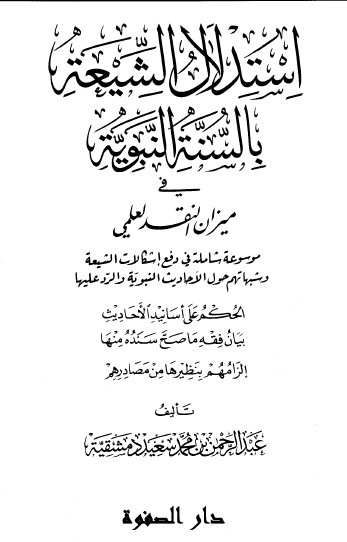 إستدلال الشيعة
بالسنة النبوية
في
ميزان النقد العلمي
موسوعة شاملة في دفع إشكالات الشيعة
وشبهاتهم حول الأحاديث النبوية والرد عليها
الحكم على أسانيد الأحاديث
بيان فقه ما صح سنده منها
إلزامهم بنظيرها من مصادرهم
تأليف
عبد الرحمن بن محمد سعيد دمشقية
دار الصفوة